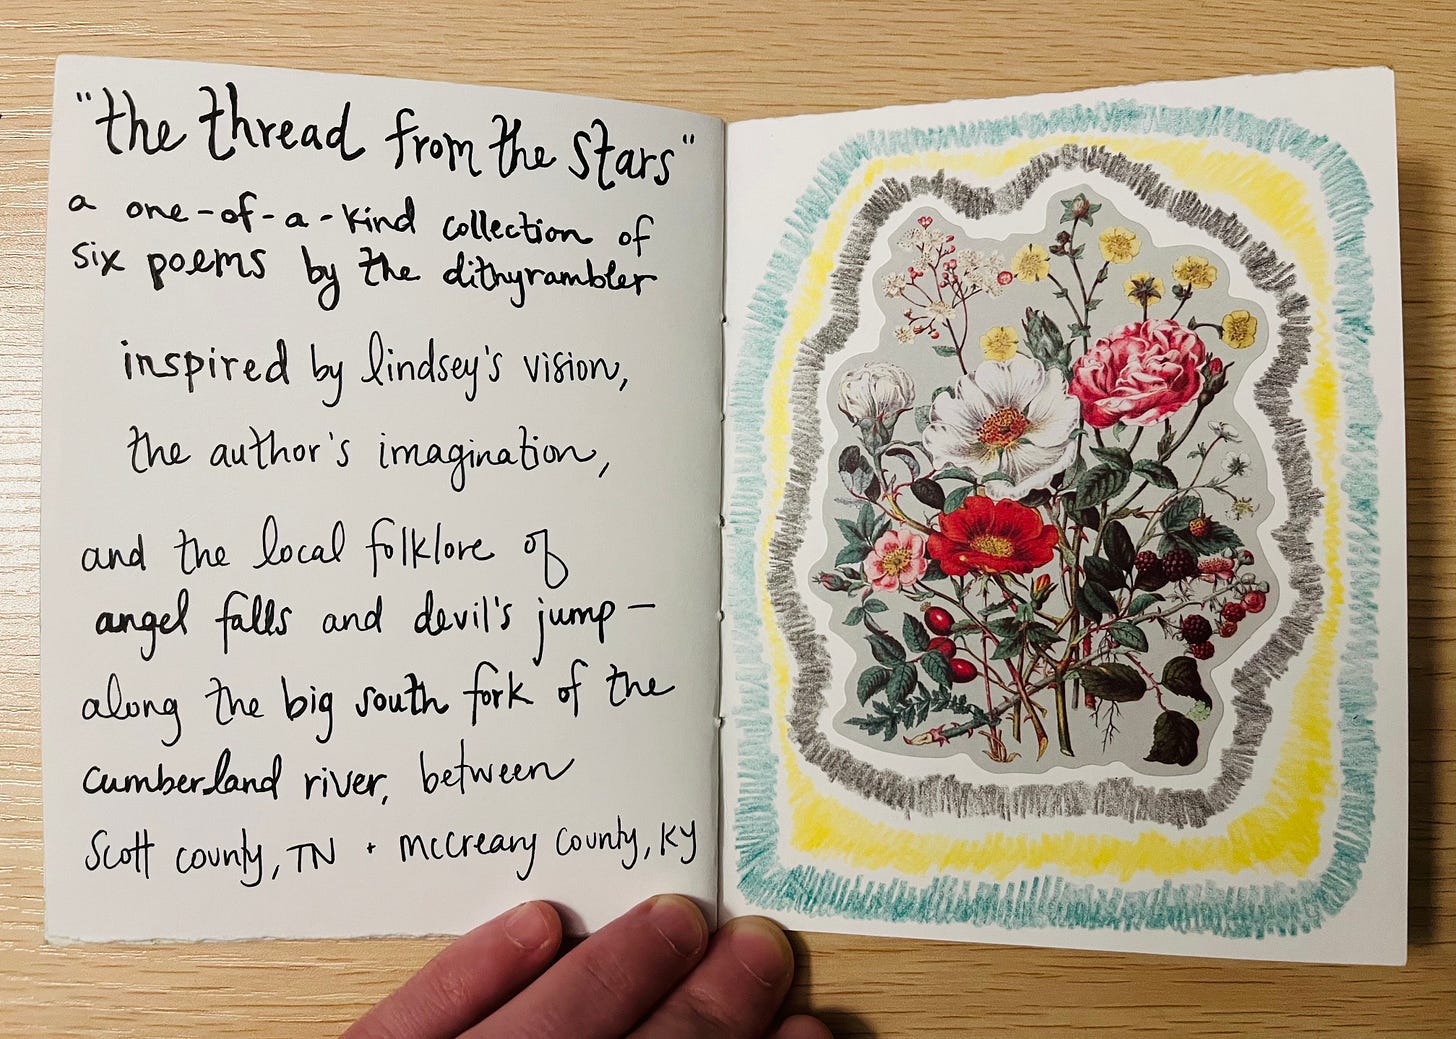 "the thread from the stars"
a one-of-a-kind collection of
six poems by the dithyrambler
inspired by lindsey's vision,
the author's imagination,
and the local folklore of
angel falls and devil's jump—
along the big south fork of the
cumberland river, between
Scott county, TN + mcCreary County, KY